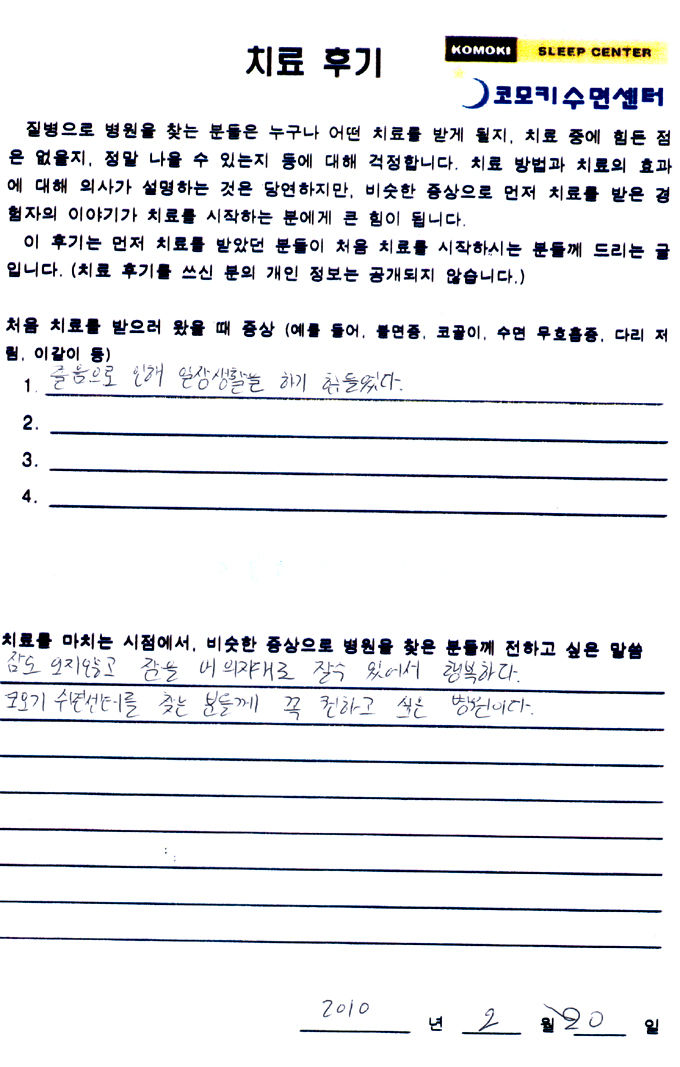 치료 후기
KOMOKI SLEEP CENTER
코모키수면센터
질병으로 병원을 찾는 분들은 누구나 어떤 치료를 받게 될지, 치료 중에 힘든 점
은 없을지, 정말 나을 수 있는지 등에 대해 걱정합니다. 치료 방법과 치료의 효과
에 대해 의사가 설명하는 것은 당연하지만, 비슷한 증상으로 먼저 치료를 받은 경
험자의 이야기가 치료를 시작하는 분에게 큰 힘이 됩니다.
이 후기는 먼저 치료를 받았던 분들이 처음 치료를 시작하시는 분들께 드리는 글
입니다. (치료 후기를 쓰신 분의 개인 정보는 공개되지 않습니다.)
처음 치료를 받으러 왔을 때 증상 (예를 들어, 불면증, 코골이, 수면 무호흡증, 다리 저
림, 이갈이 등)
1. 졸음으로 인해 일상생활을 하기 힘들었다.
2.
3.
4.
치료를 마치는 시점에서, 비슷한 증상으로 병원을 찾은 분들께 전하고 싶은 말씀
잠도 오지않고 잠을 내 의지대로 잘수 있어서 행복하다.
코모키 수면센터를 찾는 분들께 꼭 전하고 싶은 병원이다.
2010 년 2 월 20 일